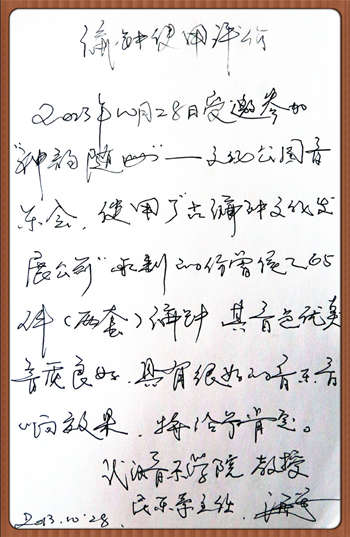 编钟使用评价
2013年10月28日受邀参加
"神韵随州"——文化公园音
乐会，使用了"古编钟文化发
展公司"承制的仿曾侯乙65
件（两套）编钟 其音色优美
音质良好，具有很好的音乐音
响效果，特给予肯定。
武汉音乐学院 教授
民乐系主任
2013.10.28.